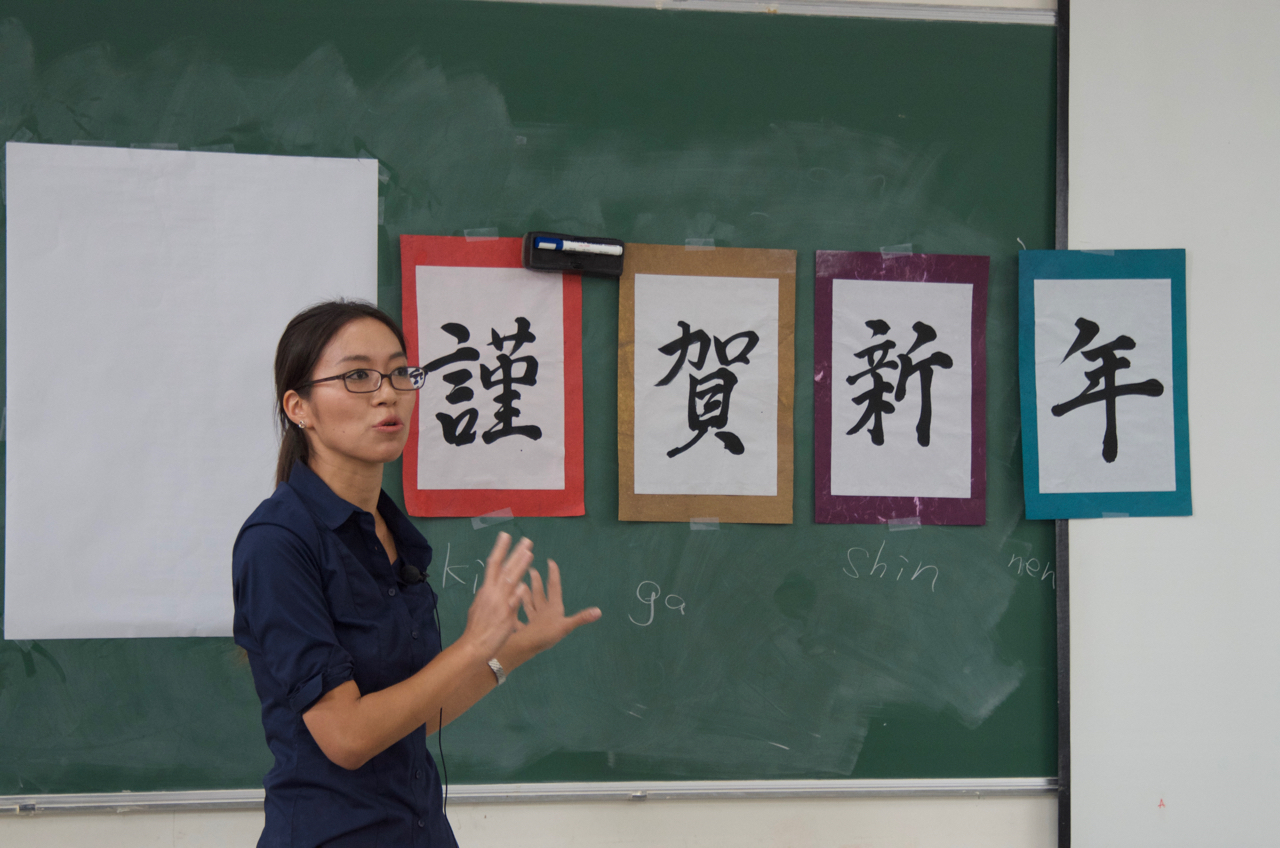 謹 賀 新 年
ga shin nen